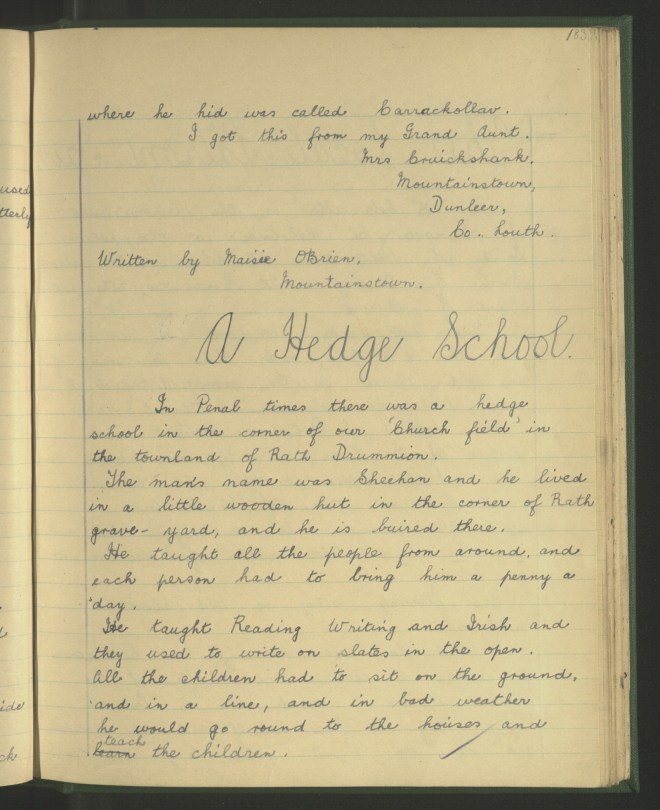 where he hid was called Carrackollav.
I got this from my Grand Aunt.
Mrs Cruickshank.
Mountainstown,
Dunleer,
Co. Louth.
Written by Maisie OBrien.
Mountainstown.
A Hedge School.
In Penal times there was a hedge
school in the corner of our 'Church field' in
the townland of Rath Drummion.
The man's name was Sheehan and he lived
in a little wooden hut in the corner of Rath
grave-yard, and he is buired there.
He taught all the people from around, and
each person had to bring him a penny a
day.
He taught Reading Writing and Irish and
they used to write on slates in the open.
All the children had to sit on the ground,
and in a line, and in bad weather
he would go round to the houses and
teach
learn the children.
used
tterly
ide
ck